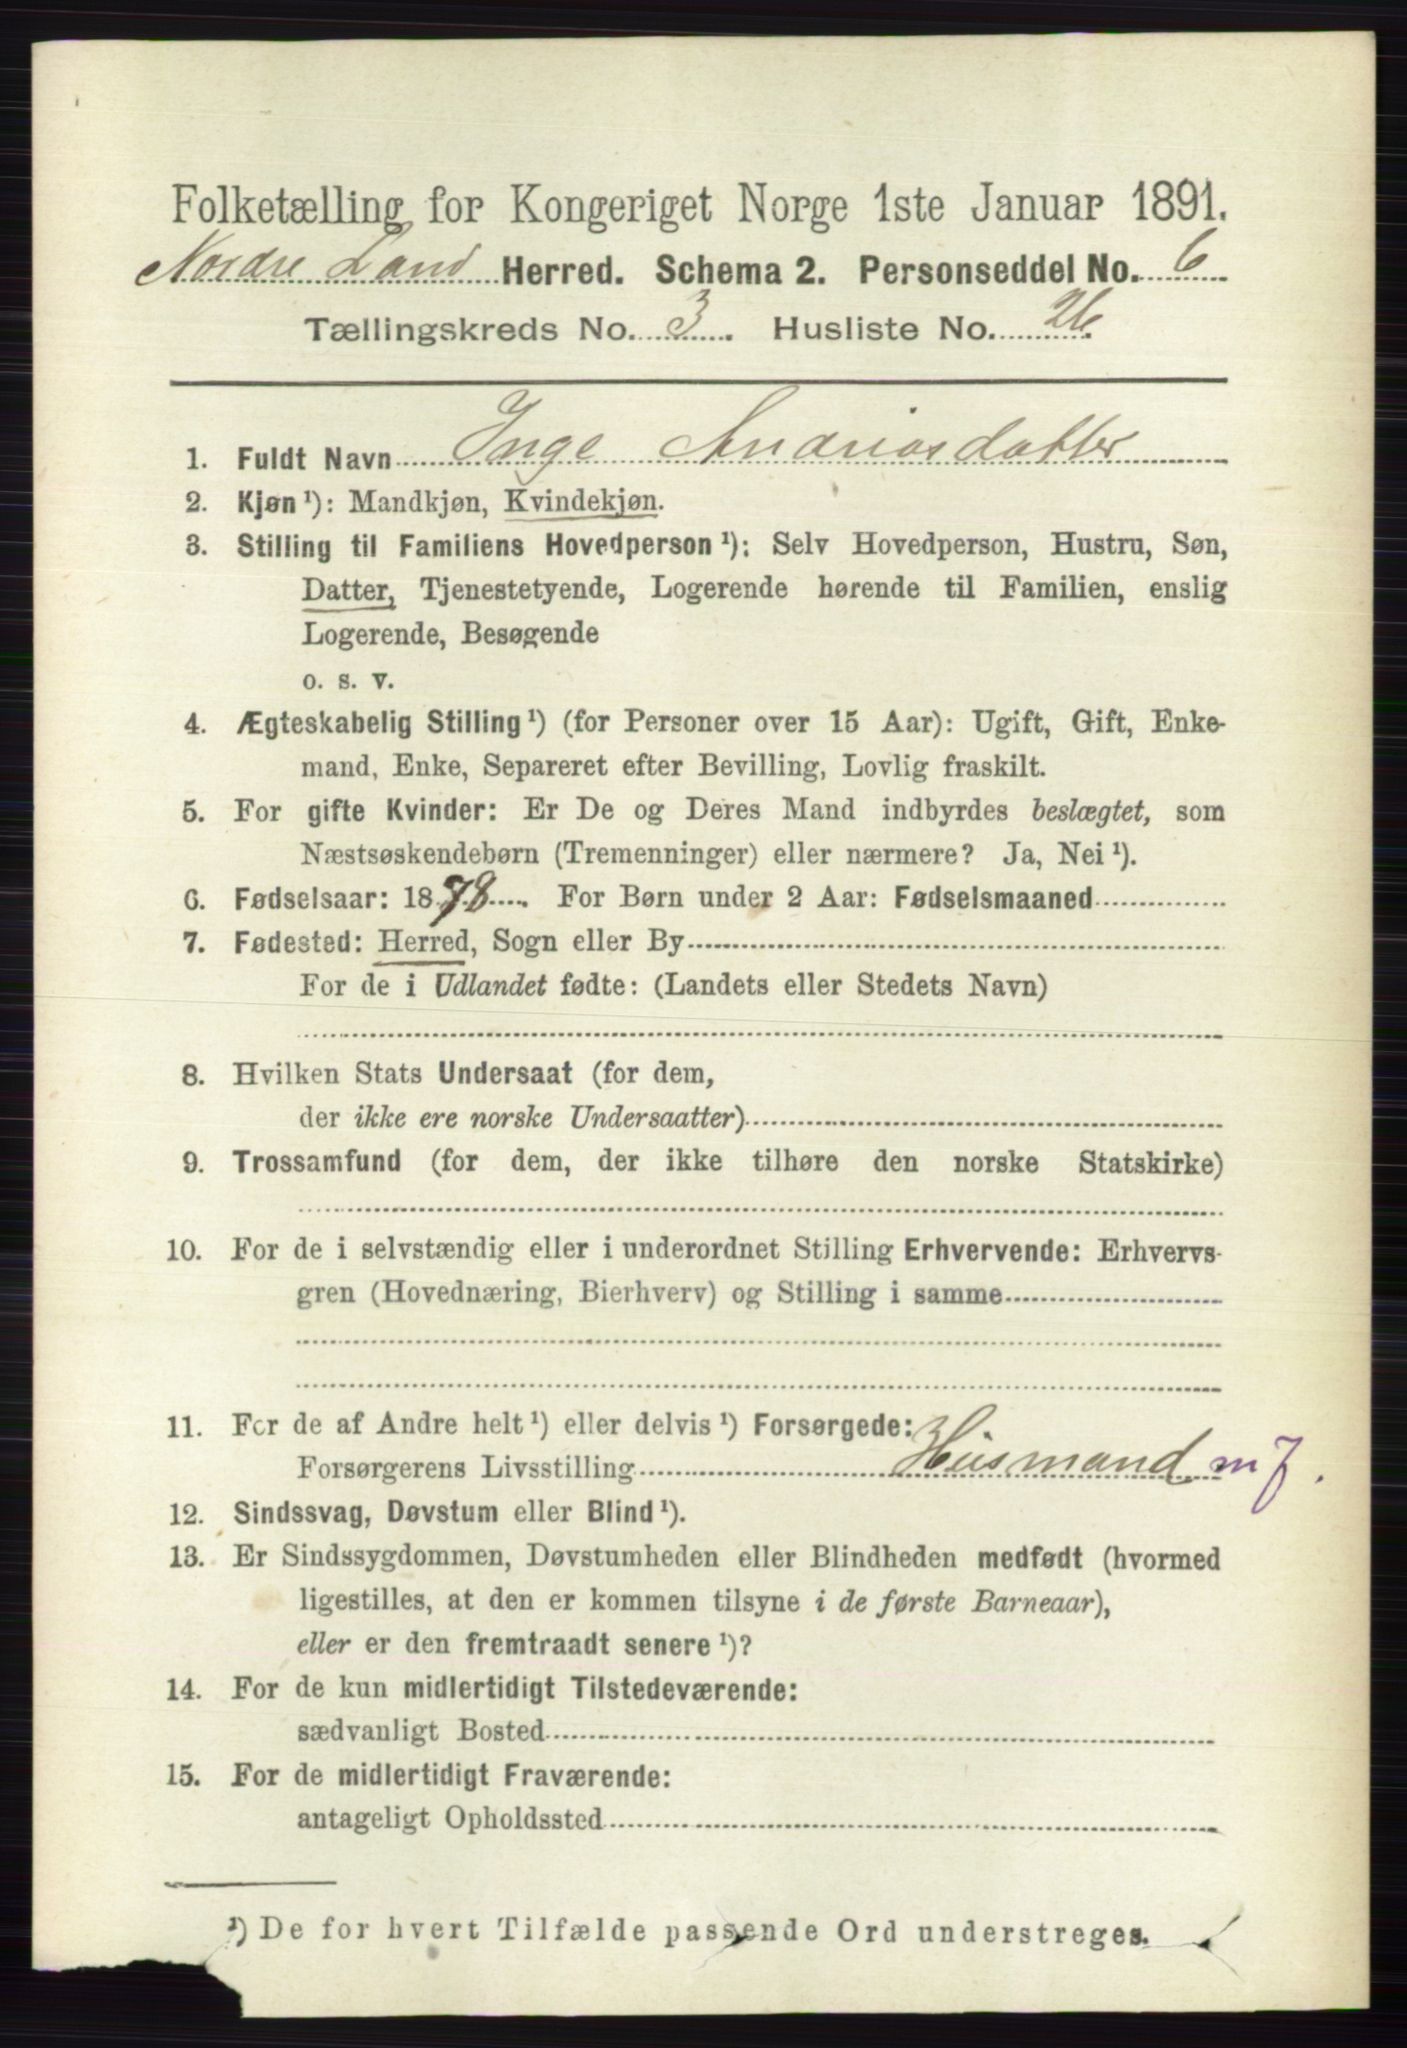 Folketælling for Kongeriget Norge 1ste Januar 1891.
Nordre Land Herred. Schema 2. Personseddel No. 6
Tællingskreds No. 3. Husliste No. 26.
1. Fuldt Navn Inge Andriasdatter
2. Kjøn¹): Mandkjøn, Kvindekjøn.
3. Stilling til Familiens Hovedperson¹): Selv Hovedperson, Hustru, Søn,
Datter, Tjenestetyende, Logerende hørende til Familien, enslig
Logerende, Besøgende
o. s. v.
4. Ægteskabelig Stilling¹) (for Personer over 15 Aar): Ugift, Gift, Enke-
mand, Enke, Separeret efter Bevilling, Lovlig fraskilt.
5. For gifte Kvinder: Er De og Deres Mand indbyrdes beslægtet, som
Næstsøskendebørn (Tremenninger) eller nærmere? Ja, Nei¹).
6. Fødselsaar: 1878. For Børn under 2 Aar: Fødselsmaaned
7. Fødested: Herred, Sogn eller By
For de i Udlandet fødte: (Landets eller Stedets Navn)
8. Hvilken Stats Undersaat (for dem,
der ikke ere norske Undersaatter)
9. Trossamfund (for dem, der ikke tilhøre den norske Statskirke)
10. For de i selvstændig eller i underordnet Stilling Erhvervende: Erhvervs-
gren (Hovednæring, Bierhverv) og Stilling i samme
11. For de af Andre helt¹) eller delvis¹) Forsørgede:
Forsørgerens Livsstilling Husmand m J.
12. Sindssvag, Døvstum eller Blind¹).
13. Er Sindssygdommen, Døvstumheden eller Blindheden medfødt (hvormed
ligestilles, at den er kommen tilsyne i de første Barneaar),
eller er den fremtraadt senere¹)?
14. For de kun midlertidigt Tilstedeværende:
sædvanligt Bosted
15. For de midlertidigt Fraværende:
antageligt Opholdssted
¹) De for hvert Tilfælde passende Ord understreges.